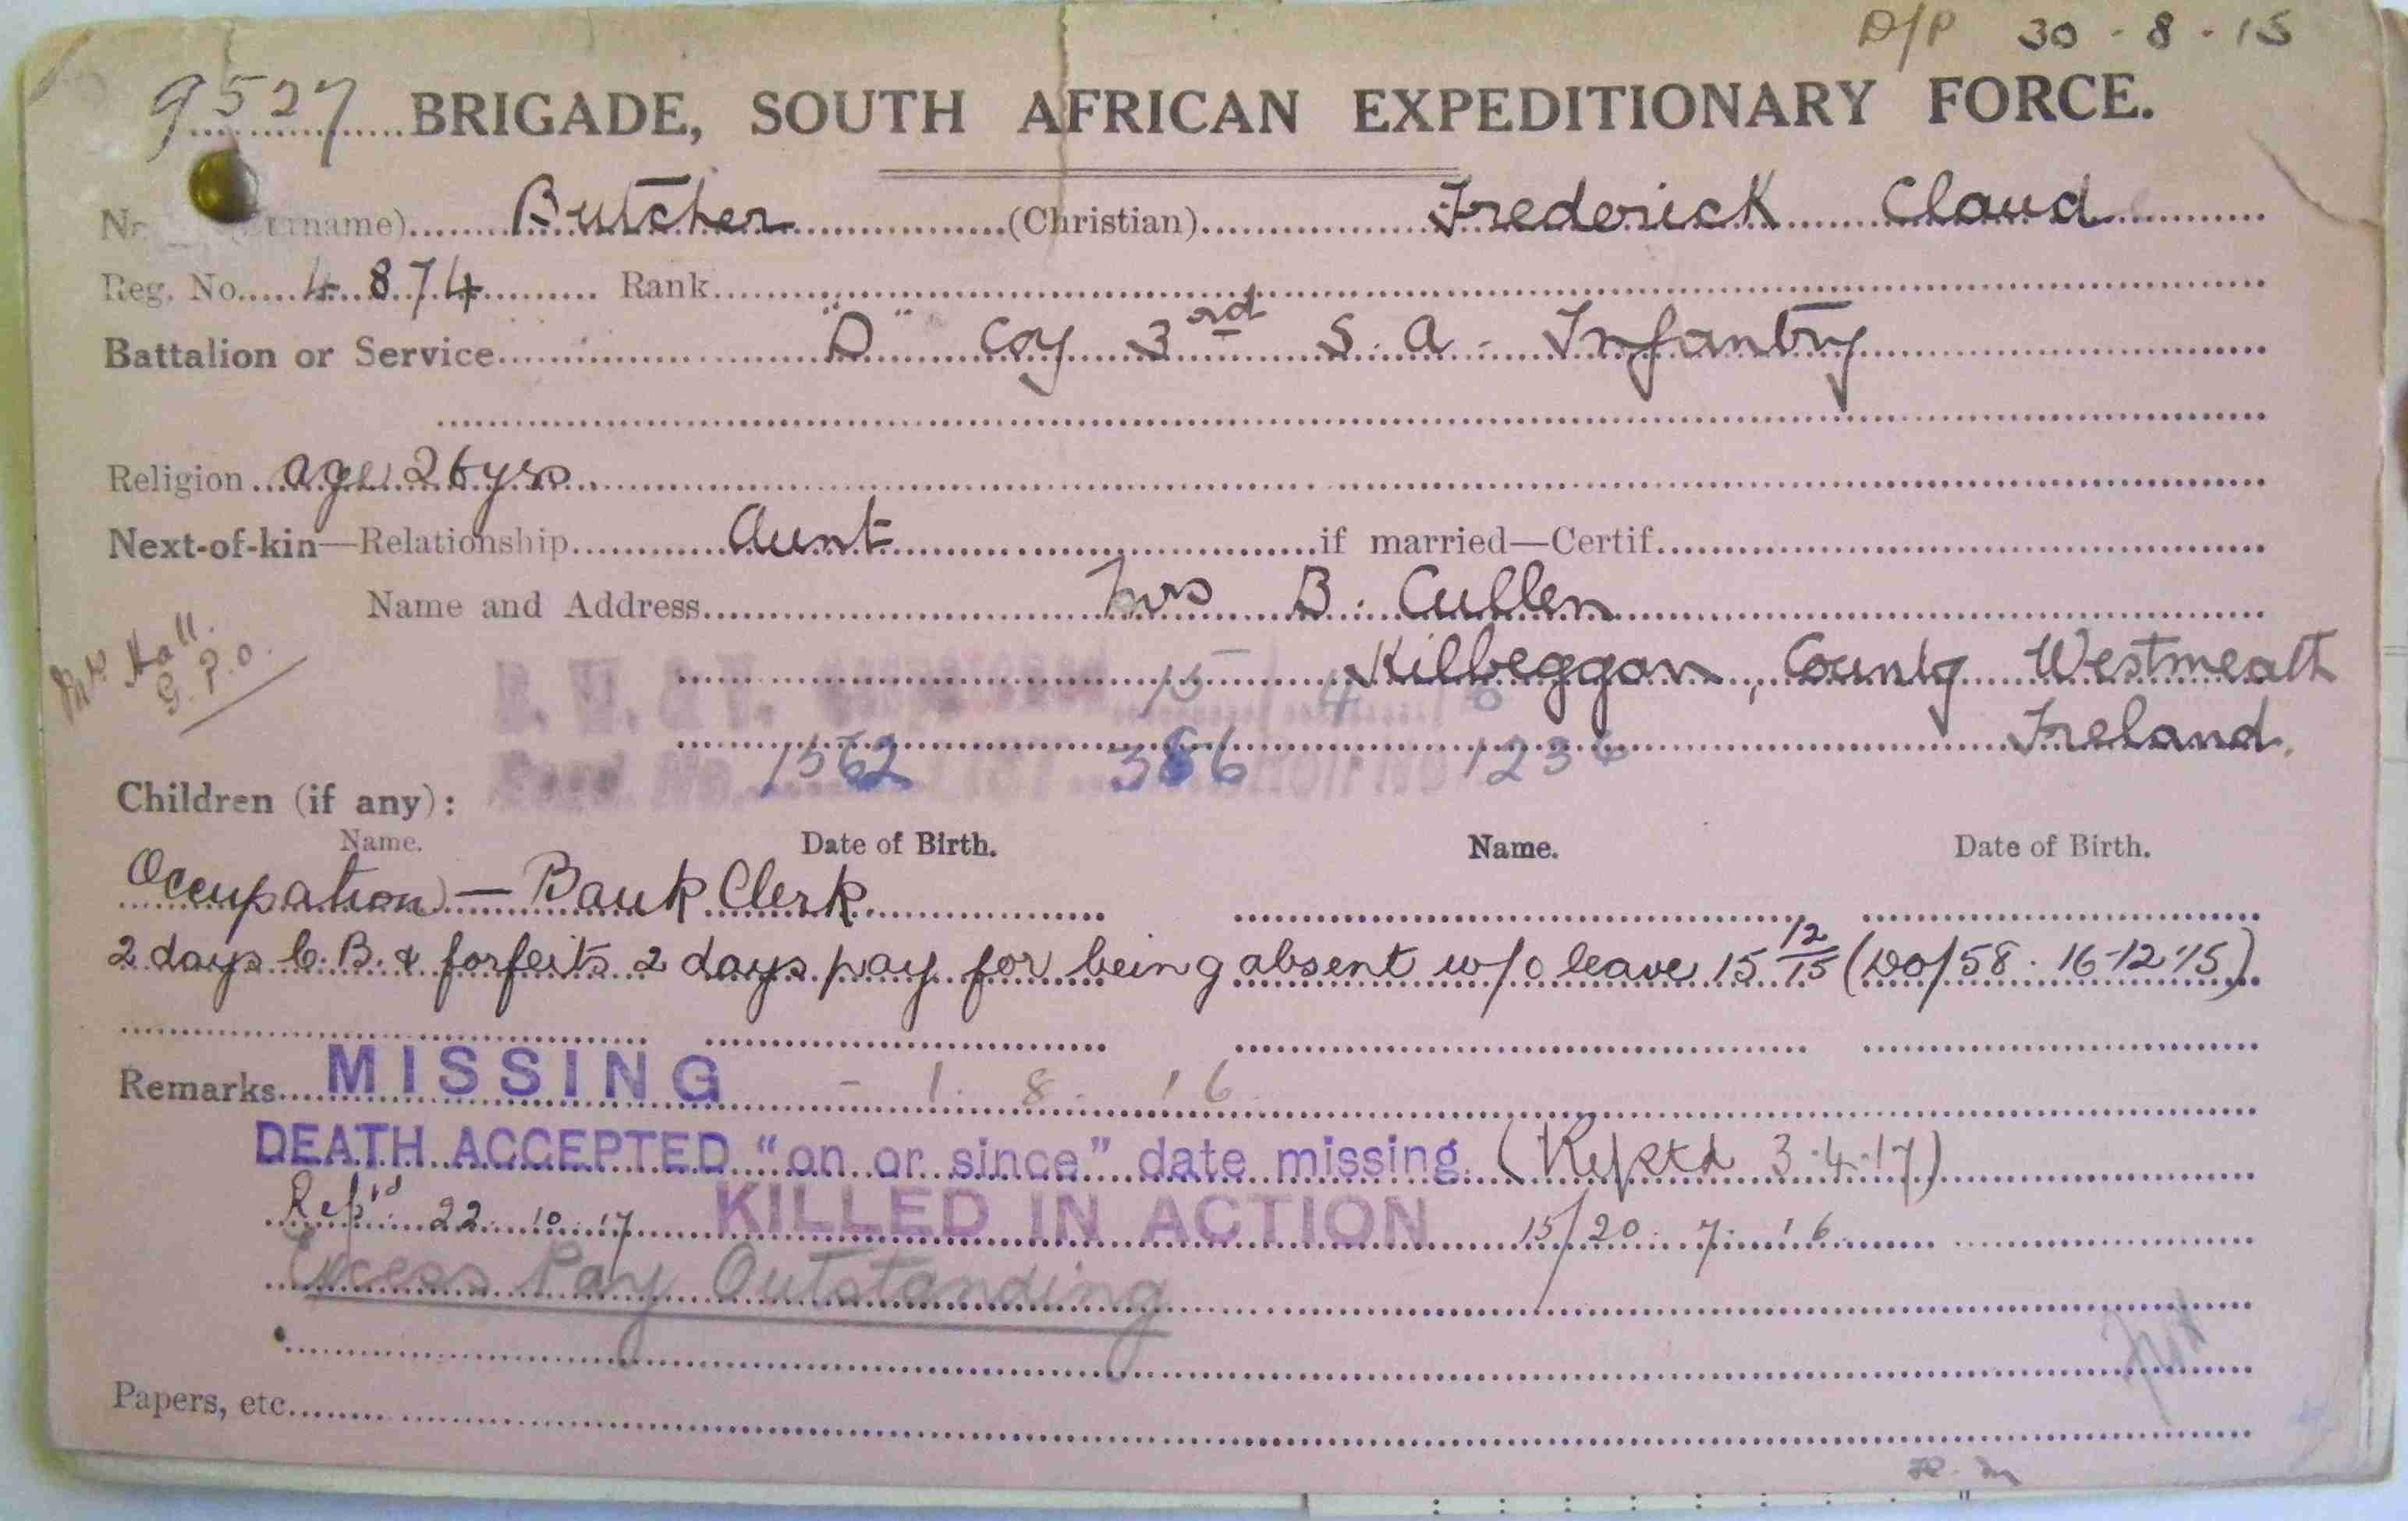 D/P 30 - 8 - 15
9527 BRIGADE, SOUTH AFRICAN EXPEDITIONARY FORCE.
Butcher (Christian) Frederick Claud
Reg. No. 4874 Rank
Battalion or Service "D" Coy 3rd S. A. Infantry
Religion age 26 yrs.
Next-of-kin—Relationship Aunt if married—Certif.
Name and Address Mrs B. Cullen
Mr Hall. G. P. O.
Kilbeggan, County Westmeath
Ireland.
1562 386 1236
Children (if any):
Name. Date of Birth. Name. Date of Birth.
Occupation — Bank Clerk.
2 days C.B. & forfeits 2 days pay for being absent w/o leave 15 12/15 (DO/58. 16-12-15).
Remarks MISSING - 1. 8. 16
DEATH ACCEPTED "on or since" date missing. (Reptd 3.4.17)
Rep'd. 22. 10. 17 KILLED IN ACTION 15/20. 7. 16.
Excess Pay Outstanding
Papers, etc.